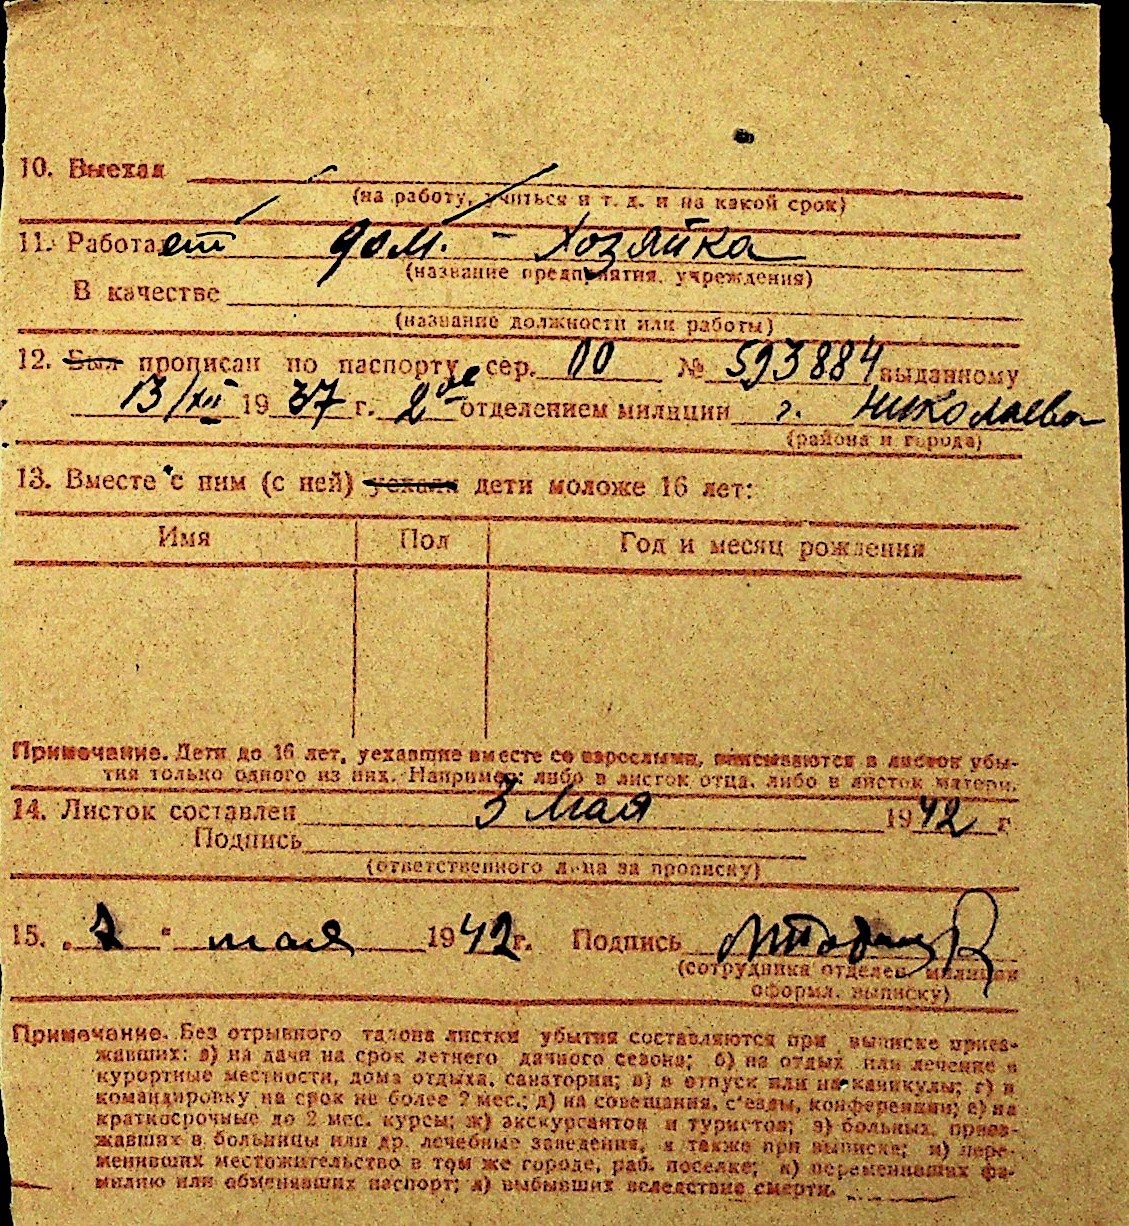 10. Выехал
(на работу, учиться и т. д. и на какой срок)
11. Работает дом. - хозяйка
(название предприятия, учреждения)
В качестве
(название должности или работы)
12. Был прописан по паспорту сер. № 593884 выданному
13/XII 1937 г. 2ое отделением милиции г. Николаева
(района и города)
13. Вместе с ним (с ней) уехали дети моложе 16 лет:
Имя Пол Год и месяц рождения
Примечание. Дети до 16 лет, уехавшие вместе со взрослыми, вписываются в листок убы-
тия только одного из них. Например: либо в листок отца, либо в листок матери.
14. Листок составлен 3 мая 1942 г
Подпись
(ответственного лица за прописку)
15. „7" мая 1942 г. Подпись
(сотрудника отделен. милиции
оформл. выписку)
Примечание. Без отрывного талона листки убытия составляются при выписке приез-
жавших: а) на дачи на срок летнего дачного сезона; б) на отдых или лечение в
курортные местности, дома отдыха, санатории; в) в отпуск или на каникулы; г) в
командировку на срок не более 2 мес.; д) на совещания, с'езды, конференции; е) на
краткосрочные до 2 мес. курсы; ж) экскурсантов и туристов; з) больных, приез-
жавших в больницы или др. лечебные заведения, а также при выписке; и) пере-
менивших местожительство в том же городе, раб. поселке; к) переменивших фа-
милию или обменявших паспорт; л) выбывших вследствие смерти.